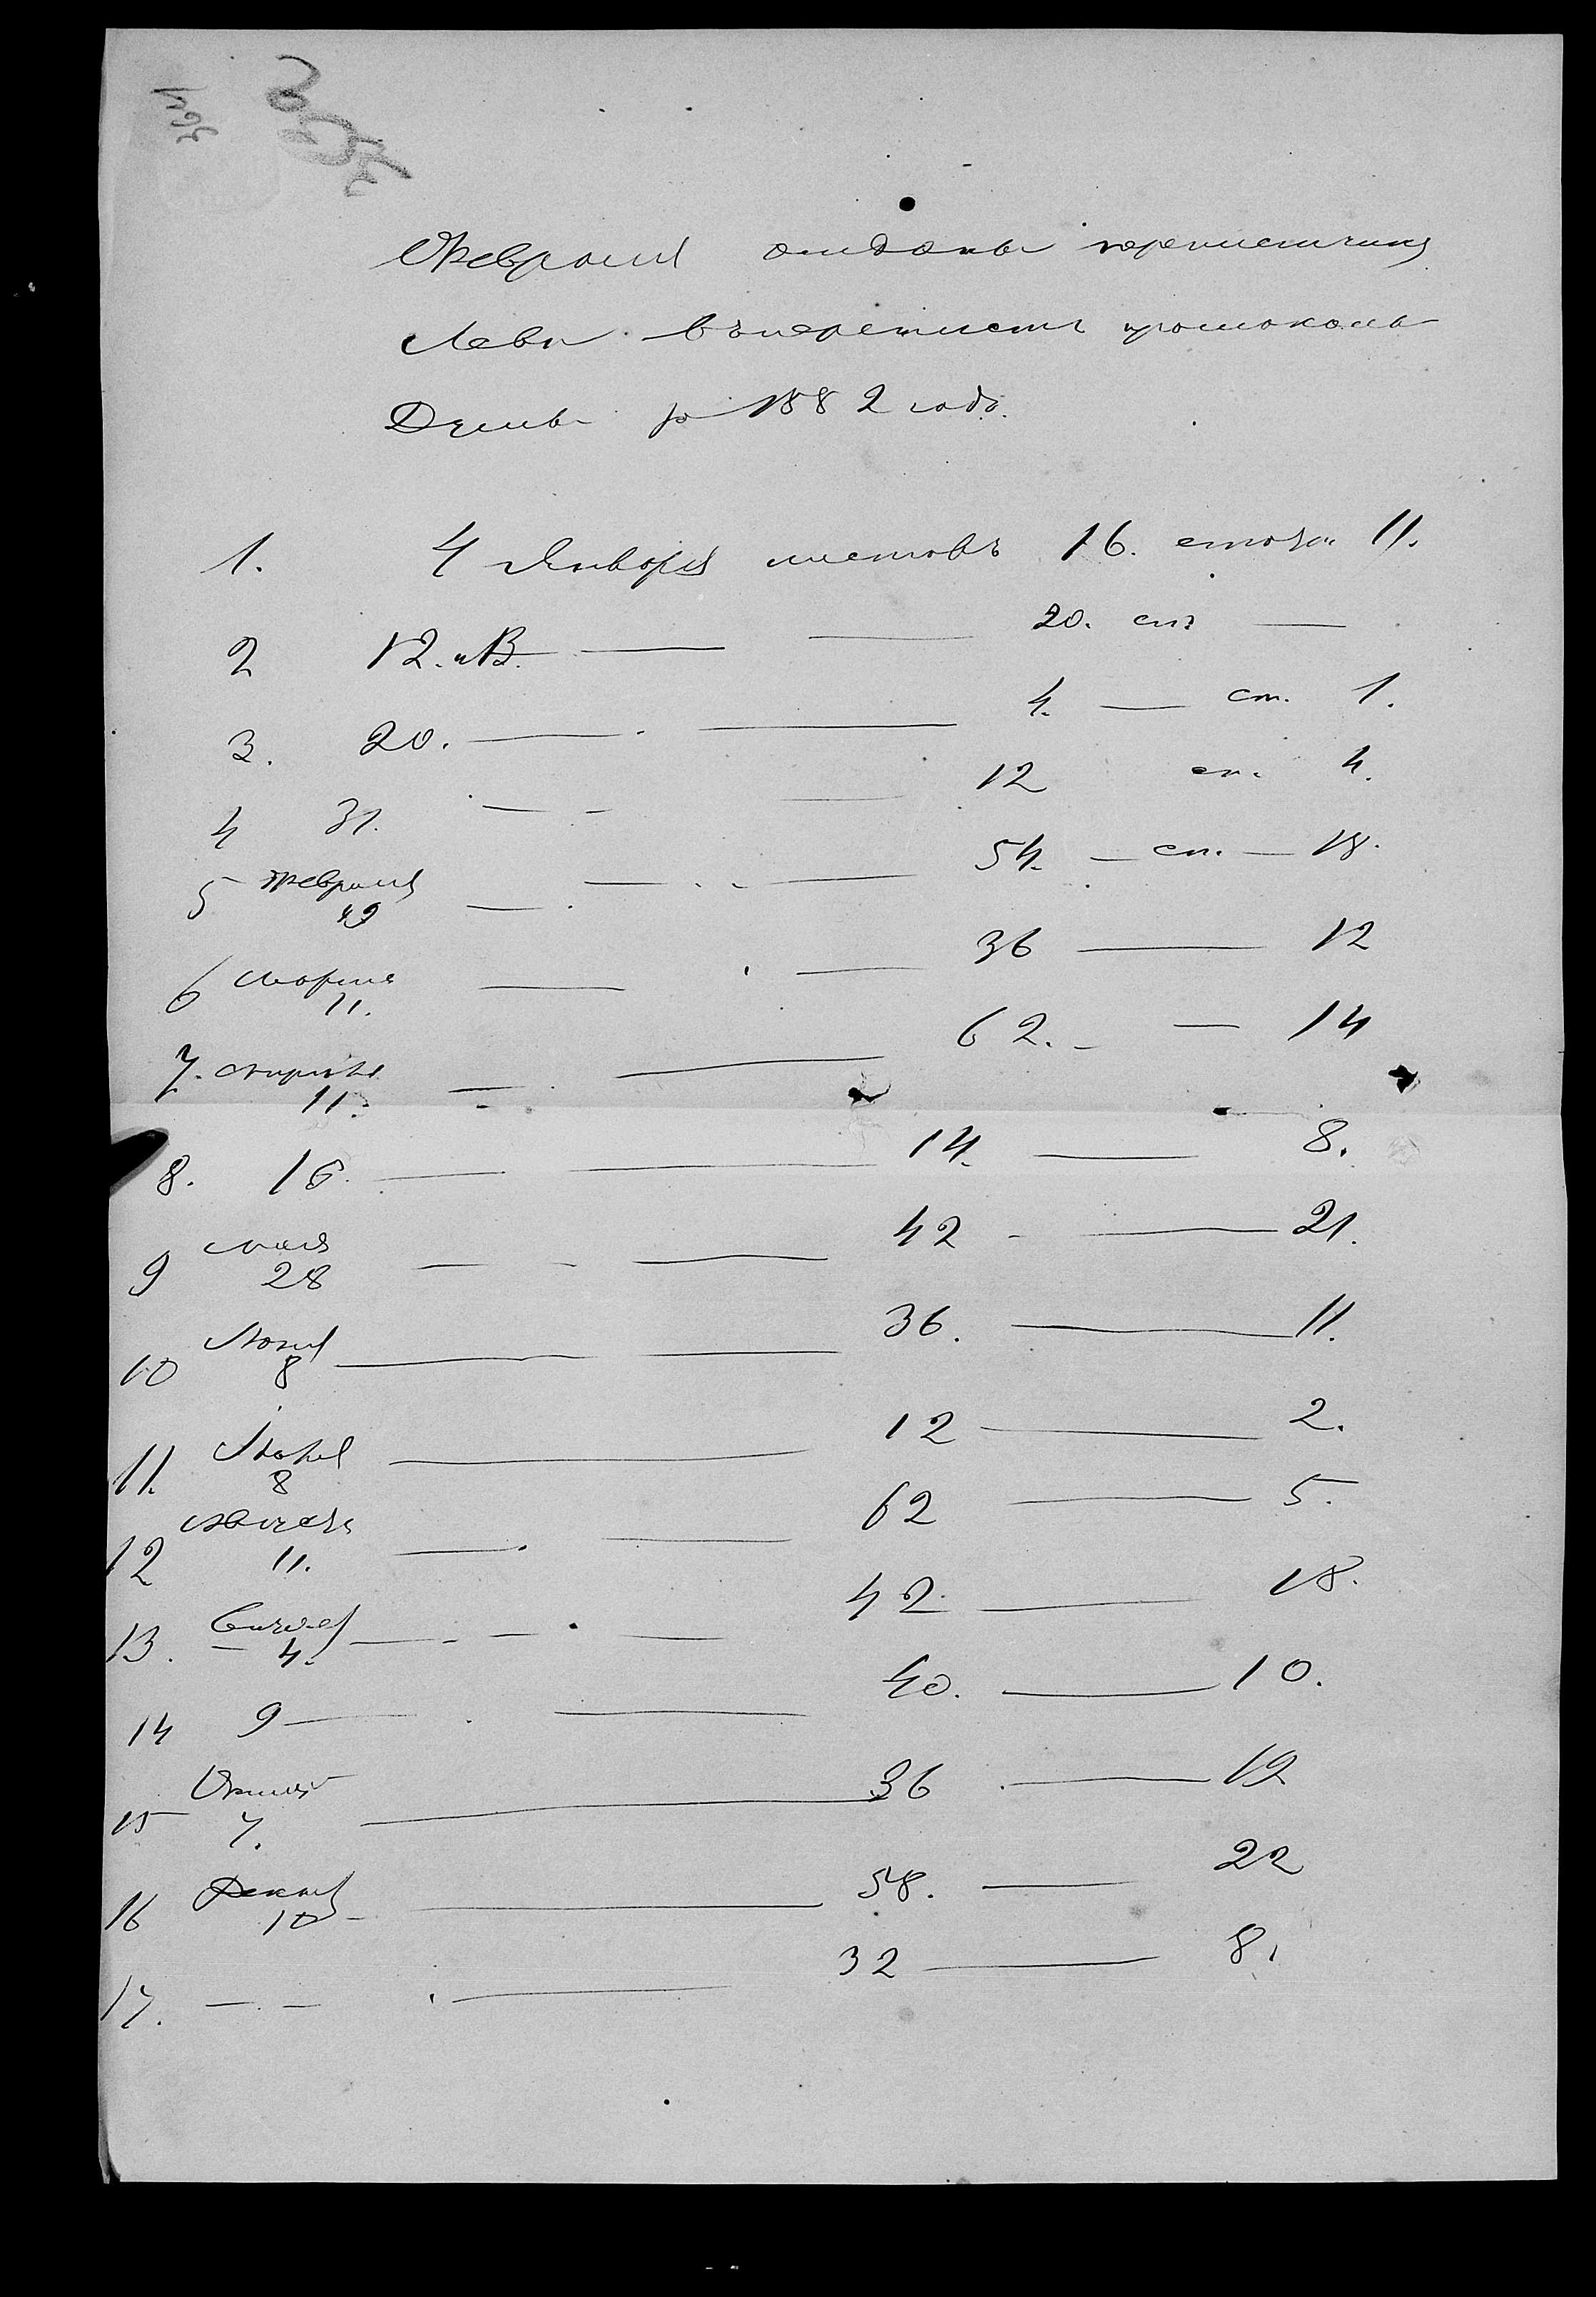 364
Февраля отданы переписчику
Леви въ переписку протоколы
Думы за 1882 годъ.
1. 4 Января листовъ 16. статьи 11.
2 12. 20. ст. —
3. 20. — 4. — ст. 1.
4 31. — 12 ст. 4.
5 Февраля — 54. — ст. — 18.
6 Марта 11. — 36 — 12
7. Апреля 11. — 62. — 14
8. 16. — 14. — 8.
9 Мая 28 — 42 — 21.
10 Июня 8 — 36. — 11.
11. Июля 8 — 12 — 2.
12 Августа 11. — 62 — 5.
13. Сентяб 4. — 42. — 18.
14 9 — 40. — 10.
15 Октяб 7. — 36 — 12
16 Декаб 10 — 58. — 22
17. — 32 — 8.